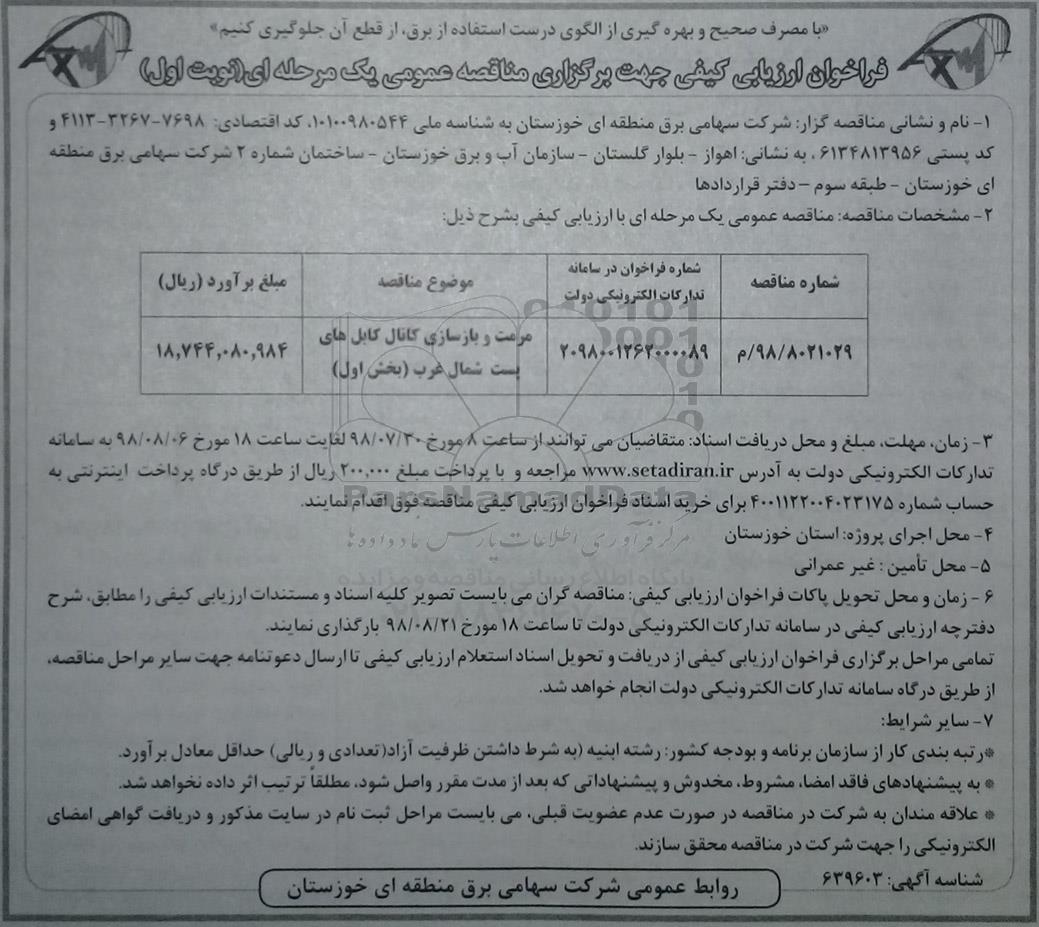 «با مصرف صحیح و بهره گیری از الگوی درست استفاده از برق، از قطع آن جلوگیری کنیم»
فراخوان ارزیابی کیفی جهت برگزاری مناقصه عمومی یک مرحله ای(نوبت اول)
۱- نام و نشانی مناقصه گزار: شرکت سهامی برق منطقه ای خوزستان به شناسه ملی ۱۰۱۰۰۹۸۰۵۴۴، کد اقتصادی: ۷۶۹۸-۳۲۶۷-۴۱۱۳ و
کد پستی ۶۱۳۴۸۱۳۹۵۶ ، به نشانی: اهواز - بلوار گلستان - سازمان آب و برق خوزستان - ساختمان شماره ۲ شرکت سهامی برق منطقه
ای خوزستان - طبقه سوم – دفتر قراردادها
۲- مشخصات مناقصه: مناقصه عمومی یک مرحله ای با ارزیابی کیفی بشرح ذیل:
شماره مناقصه
شماره فراخوان در سامانه
تدارکات الکترونیکی دولت
موضوع مناقصه
مبلغ برآورد (ریال)
۹۸/۸۰۲۱۰۲۹/م
۲۰۹۸۰۰۱۲۶۲۰۰۰۰۸۹
مرمت و بازسازی کانال کابل های
پست شمال غرب (بخش اول)
۱۸,۷۴۴,۰۸۰,۹۸۴
۳- زمان، مهلت، مبلغ و محل دریافت اسناد: متقاضیان می توانند از ساعت ۸ مورخ ۹۸/۰۷/۳۰ لغایت ساعت ۱۸ مورخ ۹۸/۰۸/۰۶ به سامانه
تدارکات الکترونیکی دولت به آدرس www.setadiran.ir مراجعه و با پرداخت مبلغ ۲۰۰,۰۰۰ ریال از طریق درگاه پرداخت اینترنتی به
حساب شماره ۴۰۰۱۱۲۲۰۰۴۰۲۳۱۷۵ برای خرید اسناد فراخوان ارزیابی کیفی مناقصه فوق اقدام نمایند.
ParsNamadData
۴- محل اجرای پروژه: استان خوزستان
مرکز فرآوری اطلاعات پارس نماد داده ها
۵- محل تأمین : غیر عمرانی
پایگاه اطلاع رسانی مناقصه و مزایده
۶ - زمان و محل تحویل پاکات فراخوان ارزیابی کیفی: مناقصه گران می بایست تصویر کلیه اسناد و مستندات ارزیابی کیفی را مطابق، شرح
دفترچه ارزیابی کیفی در سامانه تدارکات الکترونیکی دولت تا ساعت ۱۸ مورخ ۹۸/۰۸/۲۱ بارگذاری نمایند.
تمامی مراحل برگزاری فراخوان ارزیابی کیفی از دریافت و تحویل اسناد استعلام ارزیابی کیفی تا ارسال دعوتنامه جهت سایر مراحل مناقصه،
از طریق درگاه سامانه تدارکات الکترونیکی دولت انجام خواهد شد.
۷- سایر شرایط:
*رتبه بندی کار از سازمان برنامه و بودجه کشور: رشته ابنیه (به شرط داشتن ظرفیت آزاد(تعدادی و ریالی) حداقل معادل برآورد.
* به پیشنهادهای فاقد امضا، مشروط، مخدوش و پیشنهاداتی که بعد از مدت مقرر واصل شود، مطلقاً ترتیب اثر داده نخواهد شد.
* علاقه مندان به شرکت در مناقصه در صورت عدم عضویت قبلی، می بایست مراحل ثبت نام در سایت مذکور و دریافت گواهی امضای
الکترونیکی را جهت شرکت در مناقصه محقق سازند.
شناسه آگهی: ۶۳۹۶۰۳
روابط عمومی شرکت سهامی برق منطقه ای خوزستان